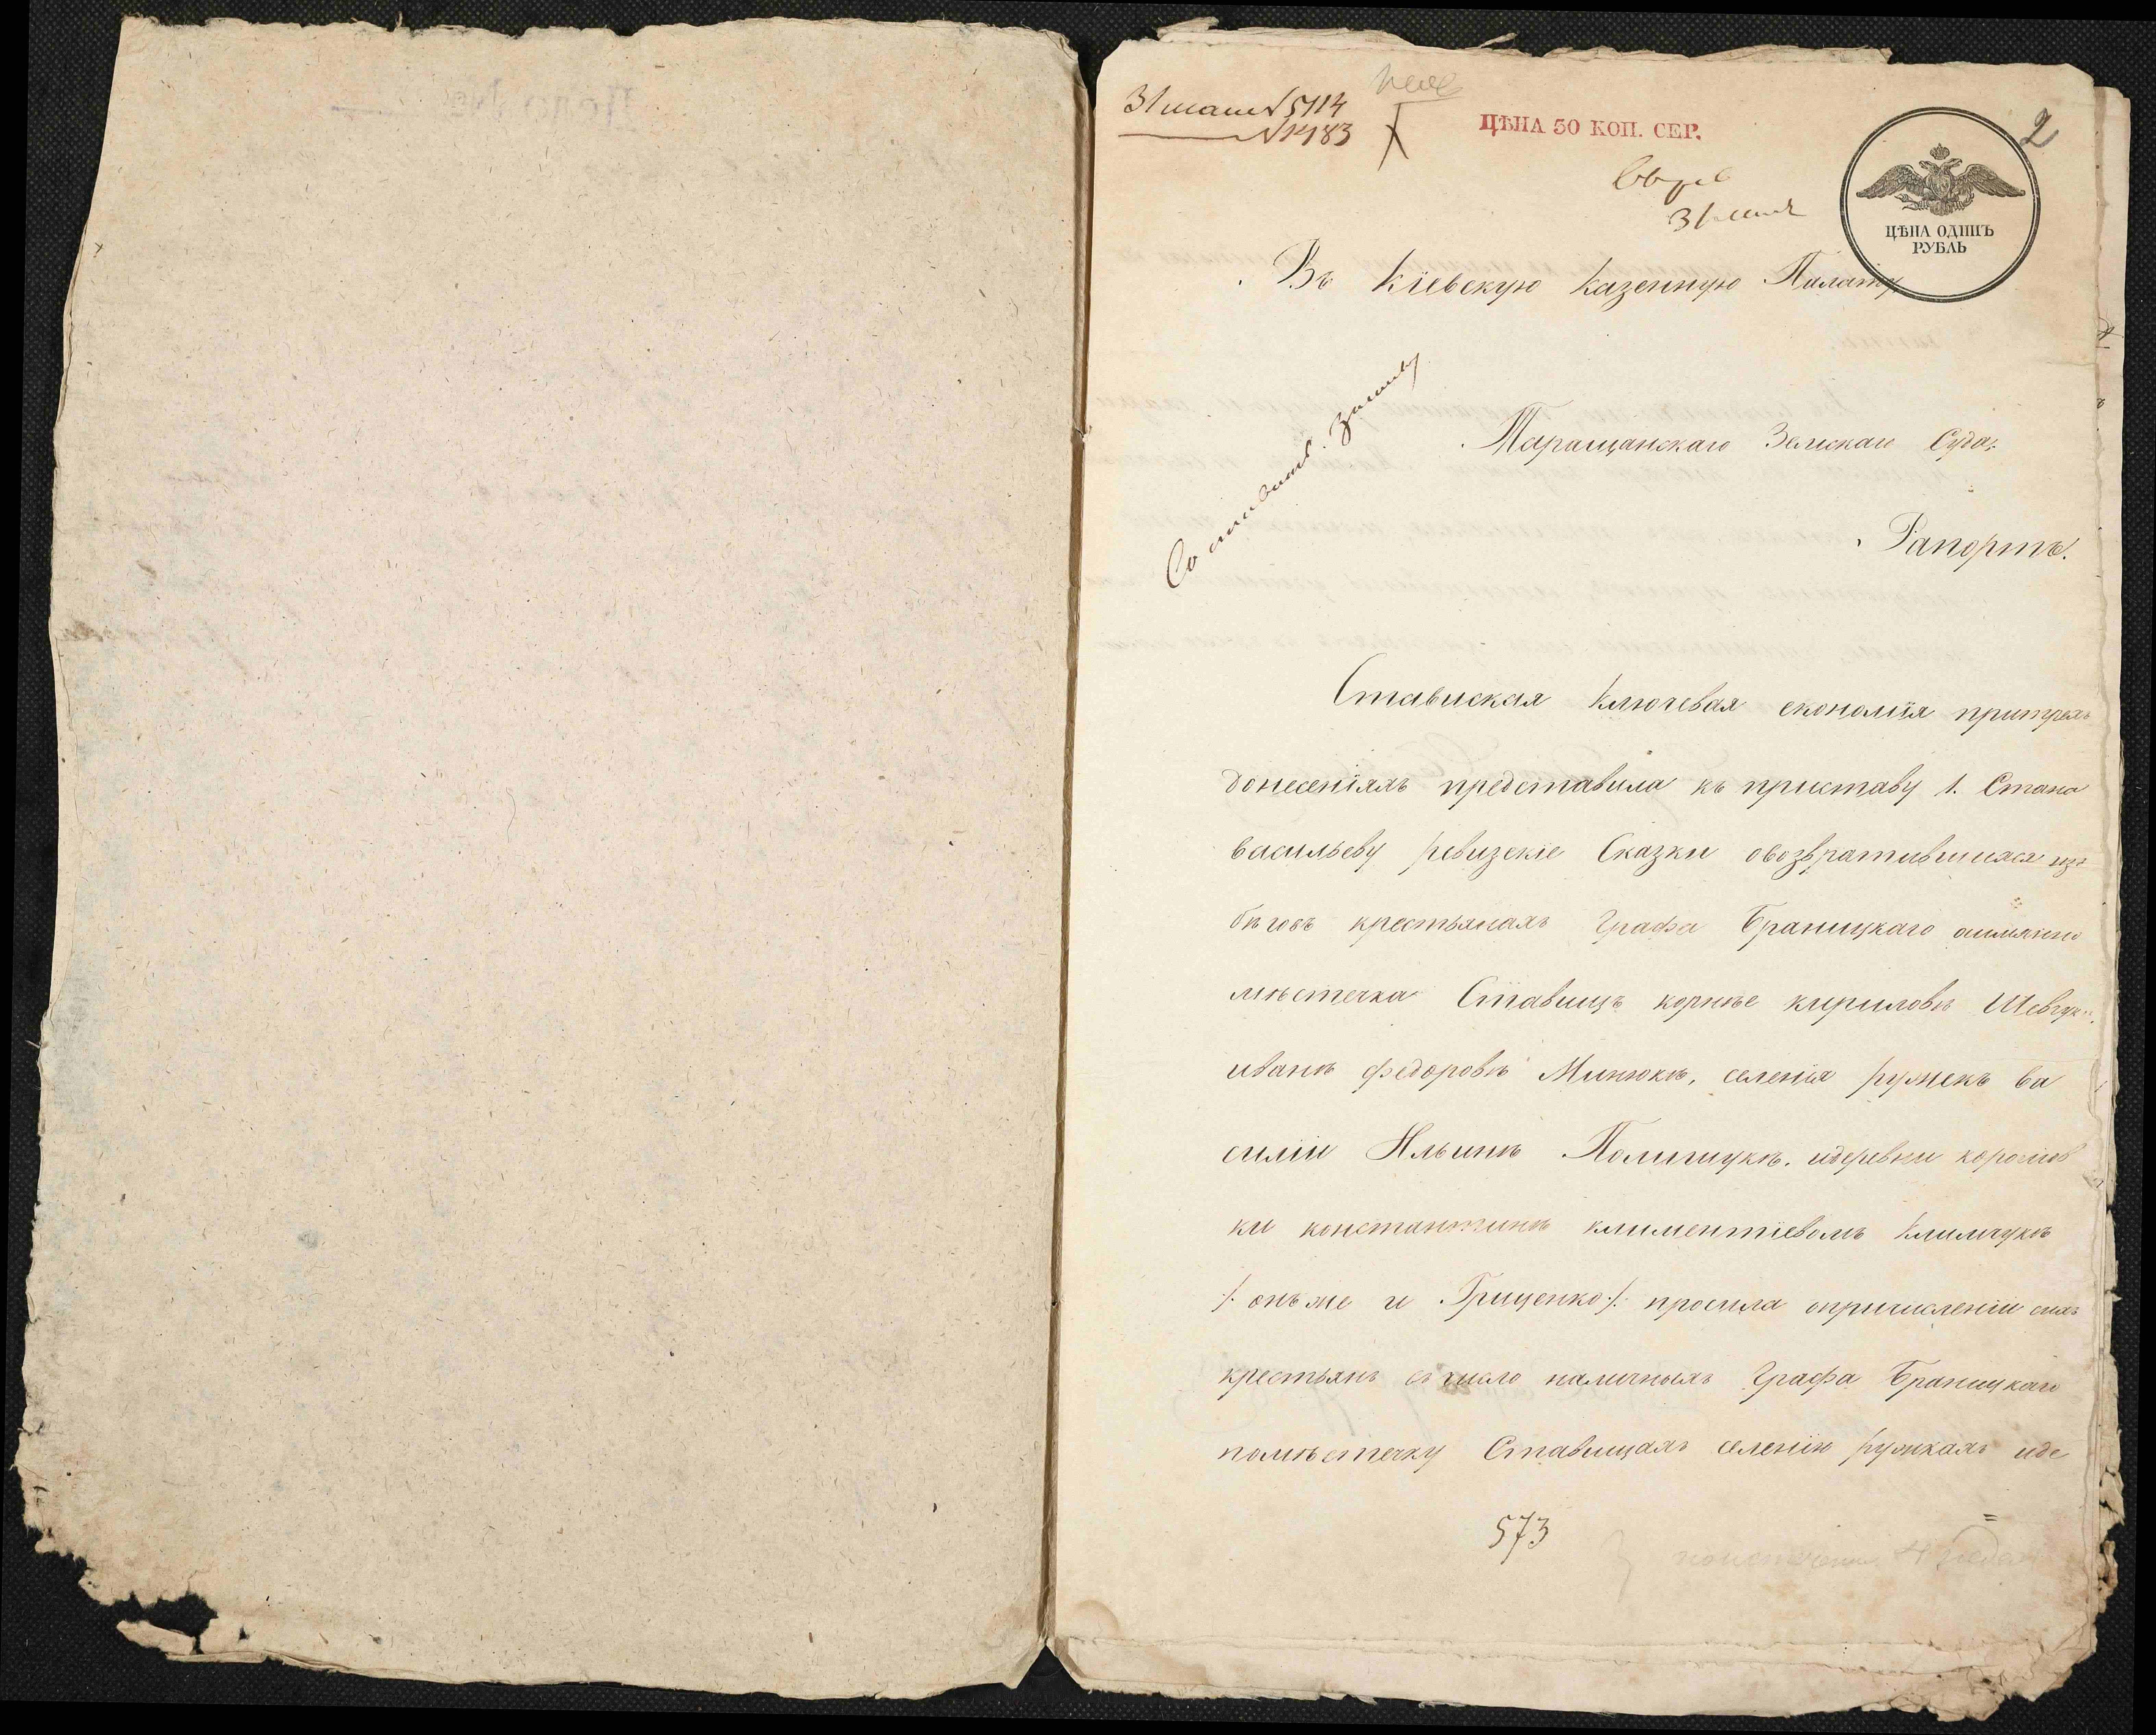 31 мая №5114
№1483
ЦѢНА 50 КОП. СЕР.
2
ЦѢНА ОДИНЪ
РУБЛЬ
31 мая
Въ Кіевскую Казенную Палату
Таращанскаго Земскаго Суда
Рапортъ.
Ставиская Ключевая економія притрехъ
донесеніяхъ представила къ приставу 1. Стана
васильеву ревизскіе Сказки овозвратившихся изъ
бѣговъ крестьянахъ Графа Браницкаго аимянно
мѣстечка Ставищъ корнѣе кириловѣ Шевчукѣ,
иванѣ федоровѣ Минюкѣ, селенія ружекъ ва
силіи Ильинѣ Полищукѣ. идеревни королів
ки константинѣ климентіевомъ Климчукѣ
/. онъ же и Гриценко ./. просила опричисленіи сихъ
крестьянъ въ число наличныхъ Графа Браницкаго
помѣстечку Ставищахъ селенію ружкахъ иде
573